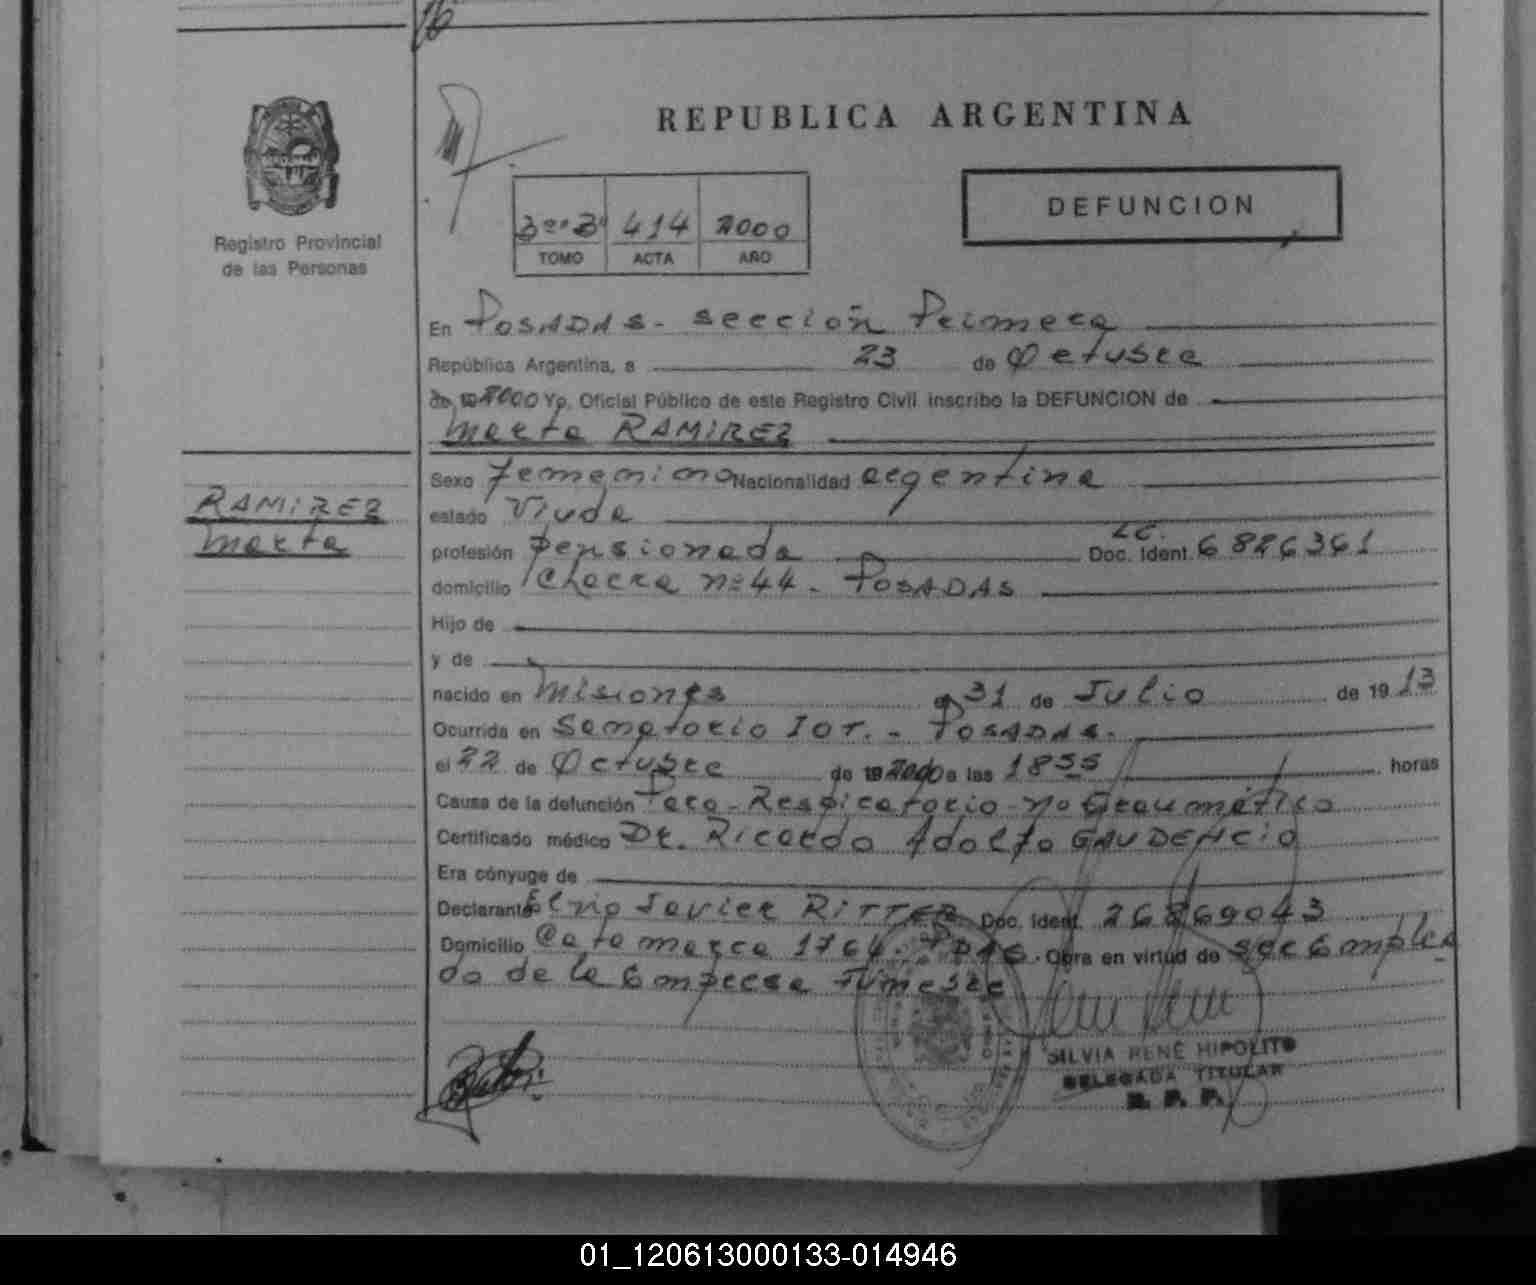 REPUBLICA ARGENTINA
DEFUNCION
414 2000
TOMO ACTA AÑO
Registro Provincial
de las Personas
En POSADAS - Sección Primera
República Argentina, a 23 de Octubre
de 2000 Yo, Oficial Público de este Registro Civil inscribo la DEFUNCION de
Marta RAMIREZ
RAMIREZ
Marta
Sexo femenino Nacionalidad argentina
estado Viuda
profesión pensionada L.C. Doc. Ident. 6826361
domicilio Chacra nº 44 - POSADAS
Hijo de
y de
nacido en Misiones el 31 de Julio de 1913
Ocurrida en Sanatorio IOT. - POSADAS.
el 22 de Octubre de 2000 a las 1855 horas
Causa de la defunción Paro - Respiratorio - no traumático
Certificado médico Dr. Ricardo Adolfo GAUDENCIO
Era cónyuge de
Declarante Elvio Javier RITTER Doc. Ident. 26869043
Domicilio Catamarca 1764. Pdas. Obra en virtud de ser Emplea
do de la Empresa Fúnebre
SILVIA RENÉ HIPOLITO
DELEGADA TITULAR
R. P. P.
01_120613000133-014946